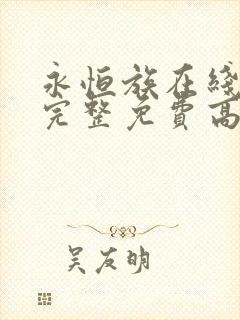 永恒族在綫
完整免費高
吴友明